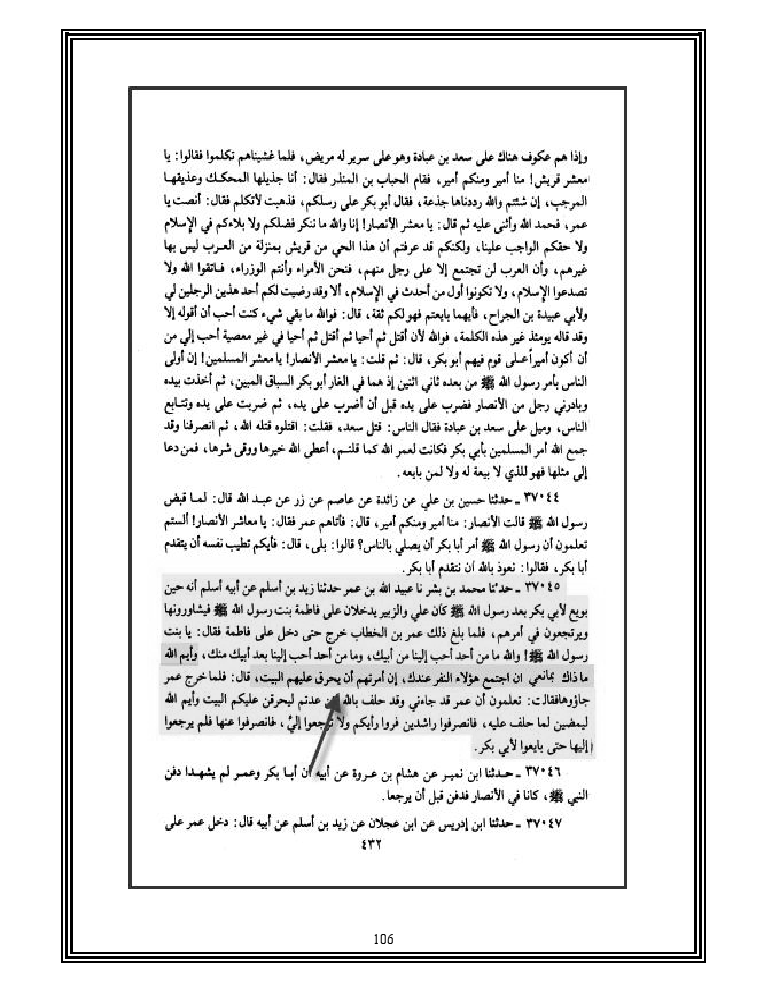 وإذا هم عكوف هناك على سعد بن عبادة وهو على سرير له مريض، فلما غشيناهم تكلموا فقالوا: يا
معشر قريش! منا أمير ومنكم أمير، فقام الحباب بن المنذر فقال: أنا جذيلها المحكك وعذيقها
المرجب، إن شئتم والله رددناها جذعة، فقال أبو بكر على رسلكم، فذهبت لأتكلم فقال: أنصت يا
عمر، فحمد الله وأثنى عليه ثم قال: يا معشر الأنصار! إنا والله ما ننكر فضلكم ولا بلاءكم في الإسلام
ولا حقكم الواجب علينا، ولكنكم قد عرفتم أن هذا الحي من قريش بمنزلة من العرب ليس بها
غيرهم، وأن العرب لن تجتمع إلا على رجل منهم، فنحن الأمراء وأنتم الوزراء، فاتقوا الله ولا
تصدعوا الإسلام، ولا تكونوا أول من أحدث في الإسلام، ألا وقد رضيت لكم أحد هذين الرجلين لي
ولأبي عبيدة بن الجراح، فأيهما بايعتم فهو لكم ثقة، قال: فوالله ما بقي شيء كنت أحب أن أقوله إلا
وقد قاله يومئذ غير هذه الكلمة، فوالله لأن أقتل ثم أحيا ثم أقتل ثم أحيا في غير معصية أحب إلي من
أن أكون أميراً على قوم فيهم أبو بكر، قال: ثم قلت: يا معشر الأنصار! يا معشر المسلمين! إن أولى
الناس بأمر رسول الله ﷺ من بعده ثاني اثنين إذ هما في الغار أبو بكر السباق المبين، ثم أخذت بيده
وبادرني رجل من الأنصار فضرب على يده قبل أن أضرب على يده، ثم ضربت على يده وتتابع
الناس، وميل على سعد بن عبادة فقال الناس: قتل سعد، فقلت: اقتلوه قتله الله، ثم انصرفنا وقد
جمع الله أمر المسلمين بأبي بكر فكانت لعمر الله كما قلتم، أعطى الله خيرها ووقى شرها، فمن دعا
إلى مثلها فهو للذي لا بيعة له ولا لمن بايعه.
٣٧٠٤٤ ـ حدثنا حسين بن علي عن زائدة عن عاصم عن زر عن عبد الله قال: لما قبض
رسول الله ﷺ قالت الأنصار: منا أمير ومنكم أمير، قال: فأتاهم عمر فقال: يا معاشر الأنصار! ألستم
تعلمون أن رسول الله ﷺ أمر أبا بكر أن يصلي بالناس؟ قالوا: بلى، قال: فأيكم تطيب نفسه أن يتقدم
أبا بكر، فقالوا: نعوذ بالله أن نتقدم أبا بكر.
٣٧٠٤٥ ـ حدثنا محمد بن بشر نا عبيد الله بن عمر حدثنا زيد بن أسلم عن أبيه أسلم أنه حين
بويع لأبي بكر بعد رسول الله ﷺ كان علي والزبير يدخلان على فاطمة بنت رسول الله ﷺ فيشاورونها
ويرتجعون في أمرهم، فلما بلغ ذلك عمر بن الخطاب خرج حتى دخل على فاطمة فقال: يا بنت
رسول الله ﷺ! والله ما من أحد أحب إلينا من أبيك، وما من أحد أحب إلينا بعد أبيك منك، وأيم الله
ما ذاك بمانعي ان اجتمع هؤلاء النفر عندك، إن أمرتهم أن يحرق عليهم البيت، قال: فلما خرج عمر
جاؤوها فقالت: تعلمون أن عمر قد جاءني وقد حلف بالله عدتم ليحرقن عليكم البيت وأيم الله
ليمضين لما حلف عليه، فانصرفوا راشدين فروا رأيكم ولا ترجعوا إليَّ، فانصرفوا عنها فلم يرجعوا
إليها حتى بايعوا لأبي بكر.
٣٧٠٤٦ ـ حدثنا ابن نمير عن هشام بن عروة عن أبيه أن أبا بكر وعمر لم يشهدا دفن
النبي ﷺ، كانا في الأنصار فدفن قبل أن يرجعا.
٣٧٠٤٧ ـ حدثنا ابن إدريس عن ابن عجلان عن زيد بن أسلم عن أبيه قال: دخل عمر على
٤٣٢
106